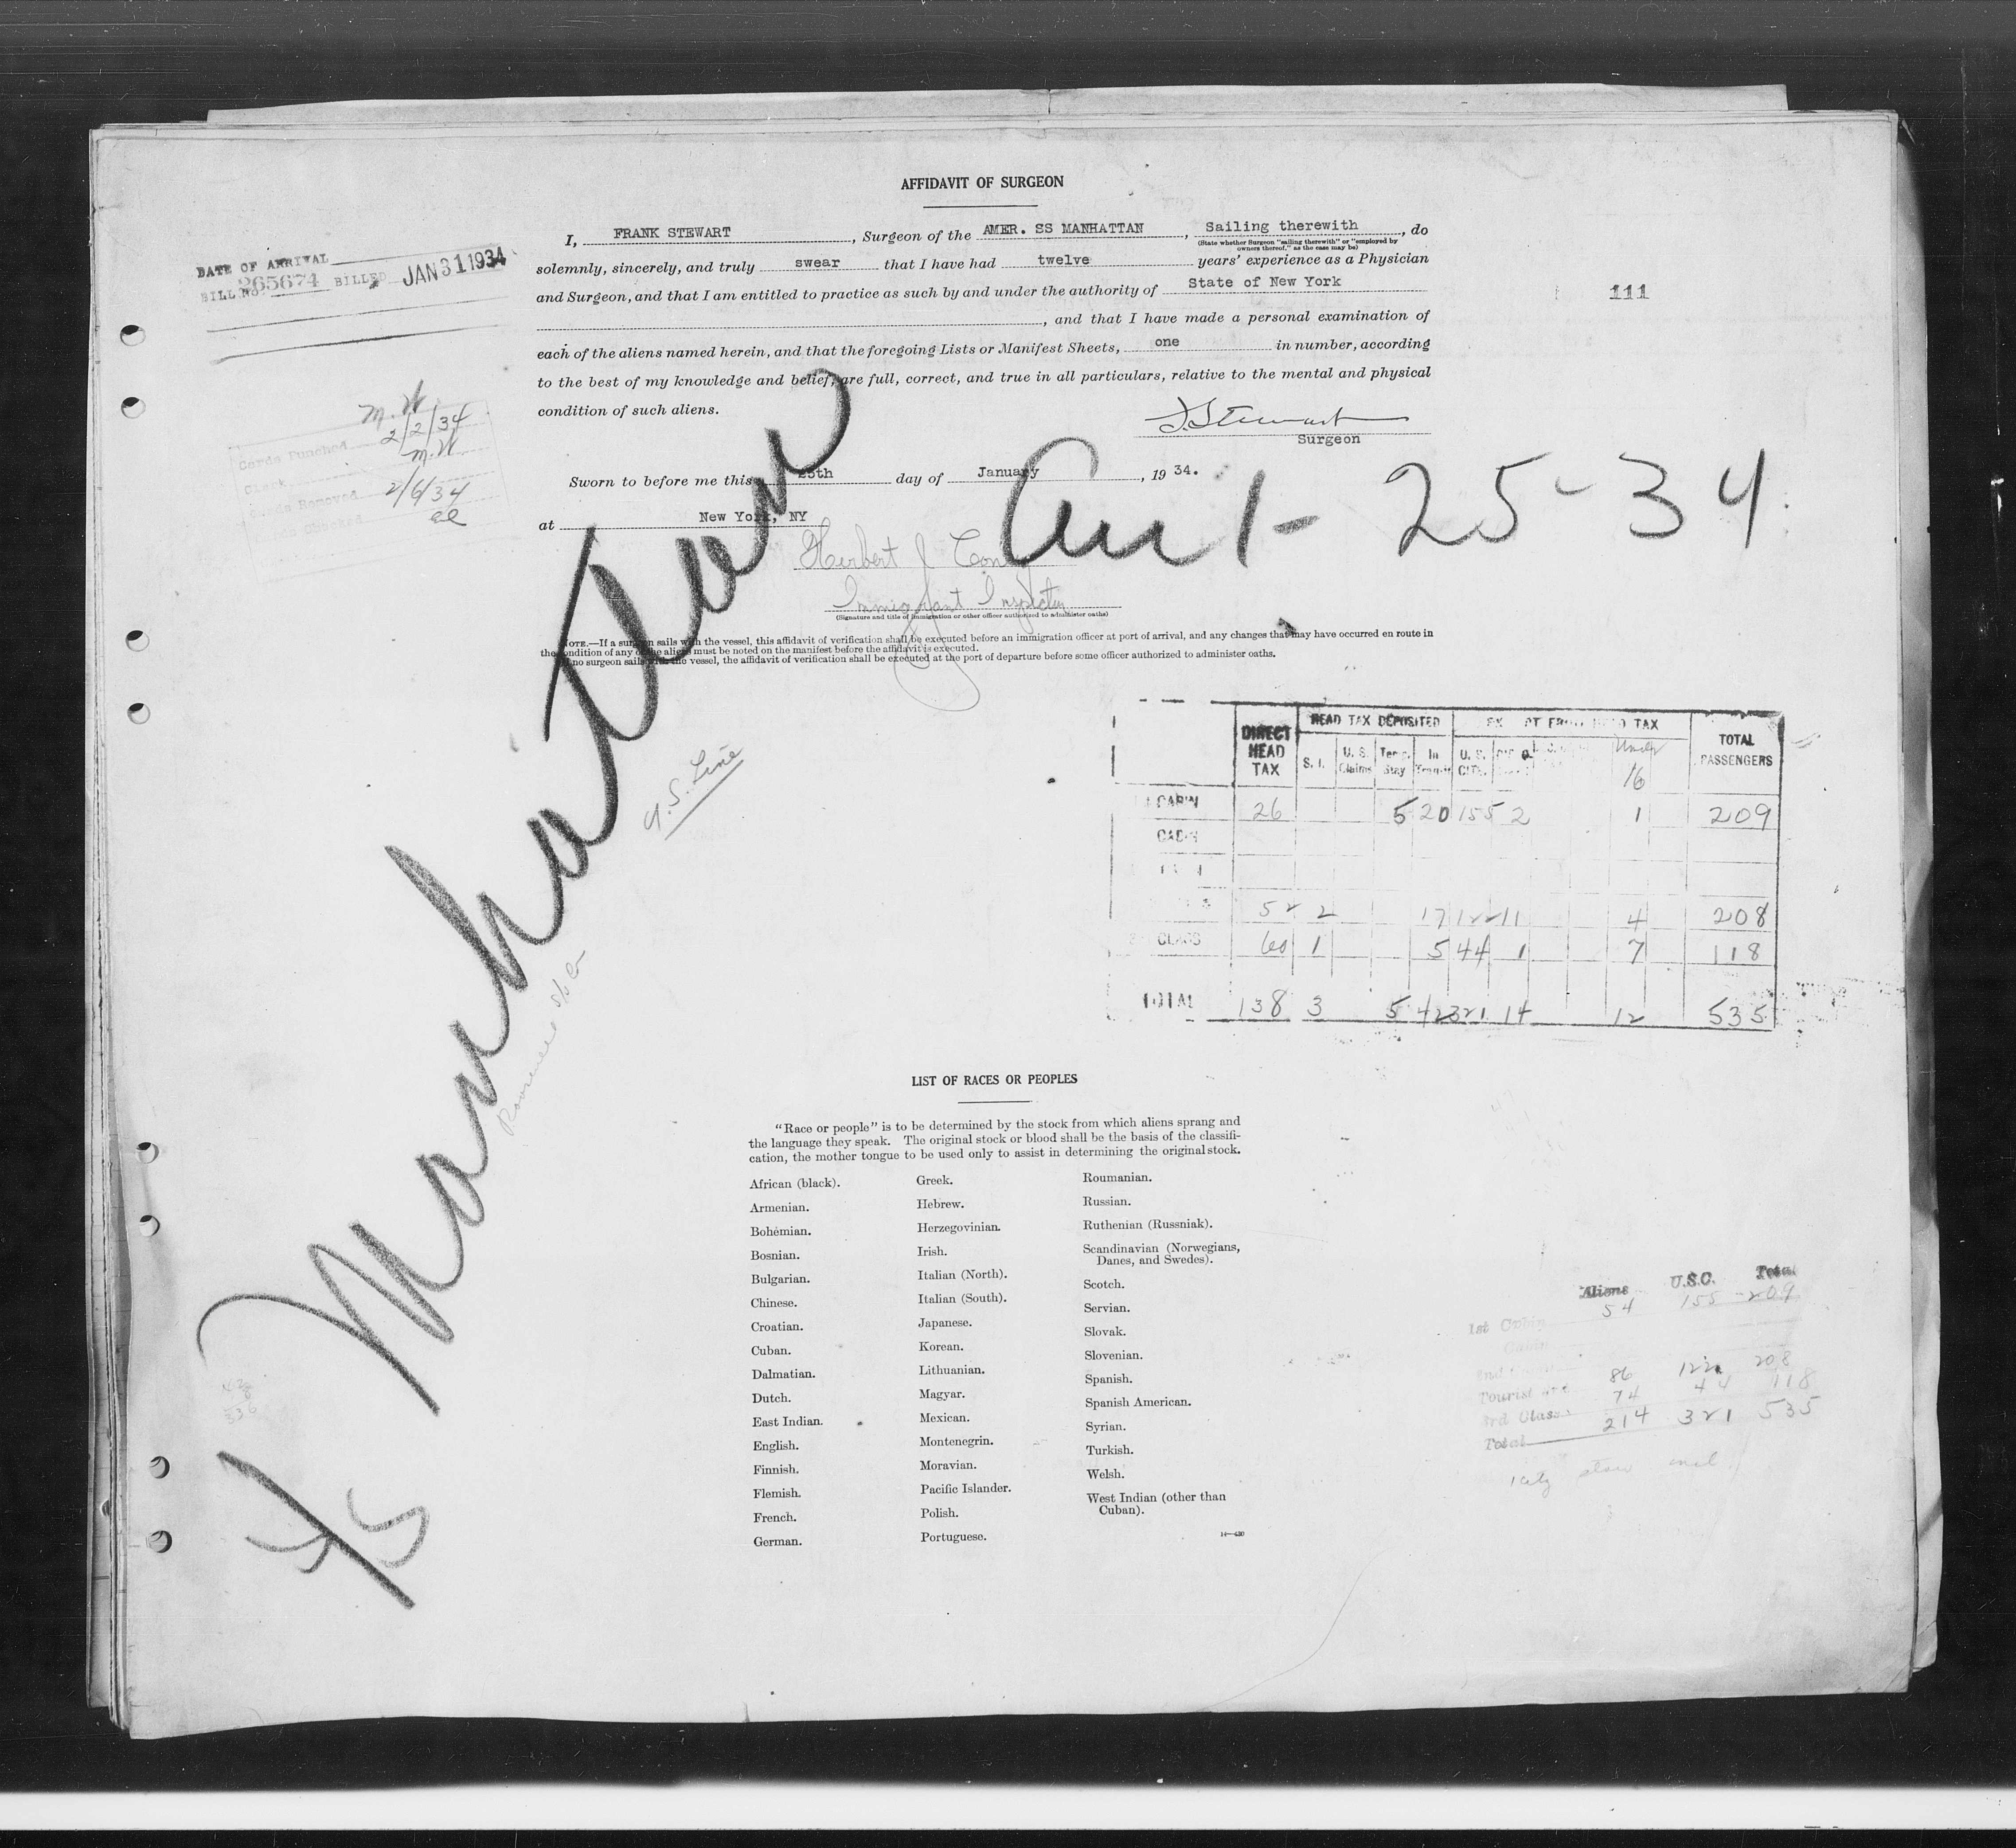 AFFIDAVIT OF SURGEON
I, FRANK STEWART, Surgeon of the AMER. SS MANHATTAN, Sailing therewith, do
(State whether Surgeon "sailing therewith" or "employed by owners thereof," as the case may be)
solemnly, sincerely, and truly swear that I have had twelve years' experience as a Physician
and Surgeon, and that I am entitled to practice as such by and under the authority of State of New York
, and that I have made a personal examination of
each of the aliens named herein, and that the foregoing Lists or Manifest Sheets, one in number, according
to the best of my knowledge and belief, are full, correct, and true in all particulars, relative to the mental and physical
condition of such aliens.
F. Stewart
Surgeon
Sworn to before me this 25th day of January, 19 34.
at New York, NY
Herbert J
Immigrant Inspector
(Signature and title of immigration or other officer authorized to administer oaths)
NOTE.—If a surgeon sails with the vessel, this affidavit of verification shall be executed before an immigration officer at port of arrival, and any changes that may have occurred en route in
the condition of any of the aliens must be noted on the manifest before the affidavit is executed.
If no surgeon sails with the vessel, the affidavit of verification shall be executed at the port of departure before some officer authorized to administer oaths.
DATE OF ARRIVAL
BILL NO. 265674 BILLED JAN 31 1934
111
M.W.
Cards Punched 2/2/34
M.W.
Clerk
Cards Removed 2/6/34
Manhattan
Arr 1-25-34
U.S. Line
DIRECT HEAD TAX
HEAD TAX DEPOSITED
HEAD TAX
TOTAL PASSENGERS
S. I.
U. S. Claims
Temp. Stay
In Transit
U. S. CITZ.
Under 16
CABIN 26 5 20 155 2 1 209
CABIN
52 2 17 122 11 4 208
CLASS 60 1 5 44 1 7 118
TOTAL 138 3 5 42 321 14 12 535
LIST OF RACES OR PEOPLES
"Race or people" is to be determined by the stock from which aliens sprang and
the language they speak. The original stock or blood shall be the basis of the classifi-
cation, the mother tongue to be used only to assist in determining the original stock.
African (black).
Armenian.
Bohemian.
Bosnian.
Bulgarian.
Chinese.
Croatian.
Cuban.
Dalmatian.
Dutch.
East Indian.
English.
Finnish.
Flemish.
French.
German.
Greek.
Hebrew.
Herzegovinian.
Irish.
Italian (North).
Italian (South).
Japanese.
Korean.
Lithuanian.
Magyar.
Mexican.
Montenegrin.
Moravian.
Pacific Islander.
Polish.
Portuguese.
Roumanian.
Russian.
Ruthenian (Russniak).
Scandinavian (Norwegians,
Danes, and Swedes).
Scotch.
Servian.
Slovak.
Slovenian.
Spanish.
Spanish American.
Syrian.
Turkish.
Welsh.
West Indian (other than
Cuban).
14—430
Aliens U.S.C. Total
1st Cabin 54 155 209
Cabin
Tourist 86 122 208
3rd Class 74 44 118
Total 214 321 535